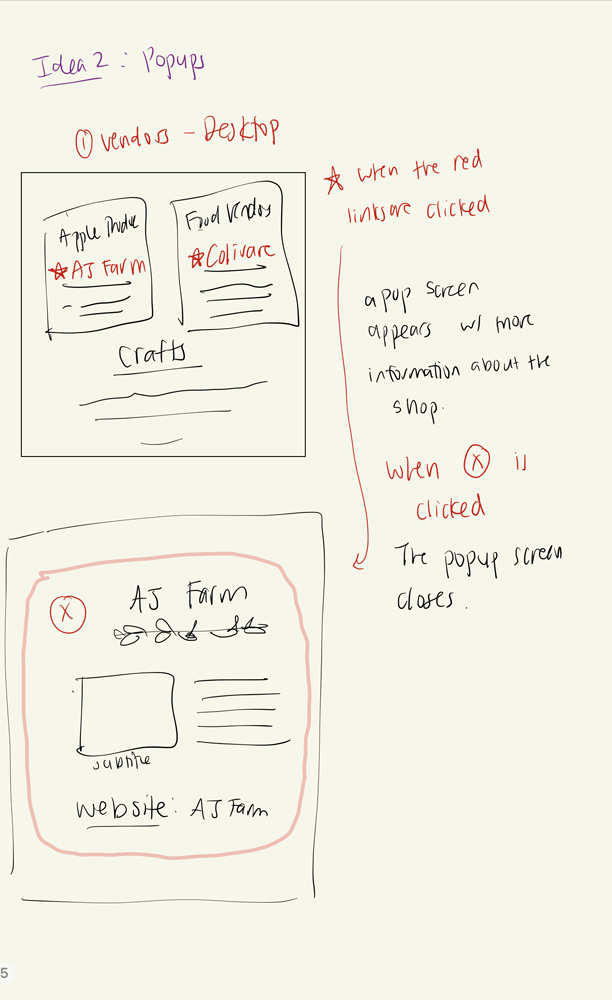 Idea 2 : Popups
① vendors – Desktop
Apple
☆ AJ Farm
Food Vendors
☆ Colivare
Crafts
☆ when the red
links are clicked
a pop screen
appears w/ more
information about the
shop.
when Ⓧ is
clicked
The popup screen
closes.
X
AJ Farm
subtitle
website: AJ Farm
5